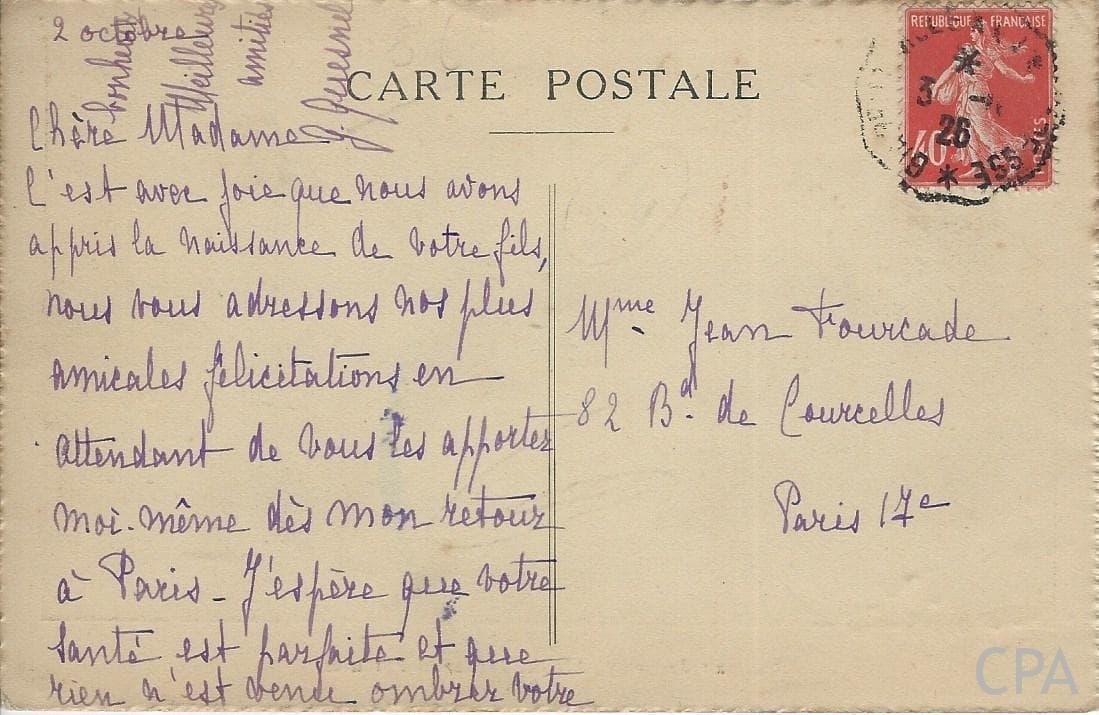 CARTE POSTALE
REPUBLIQUE FRANÇAISE
40
3
26
2 octobre
Chère Madame
C'est avec joie que nous avons
appris la naissance de votre fils,
nous vous adressons nos plus
amicales félicitations en
attendant de vous les apporter
moi-même dès mon retour
à Paris - J'espère que votre
santé est parfaite et que
rien n'est venu ombrer votre
bonheur
Meilleures
amitiés
J. Quesnel
Mme Jean Fourcade
82 Bd. de Courcelles
Paris 17e
CPA